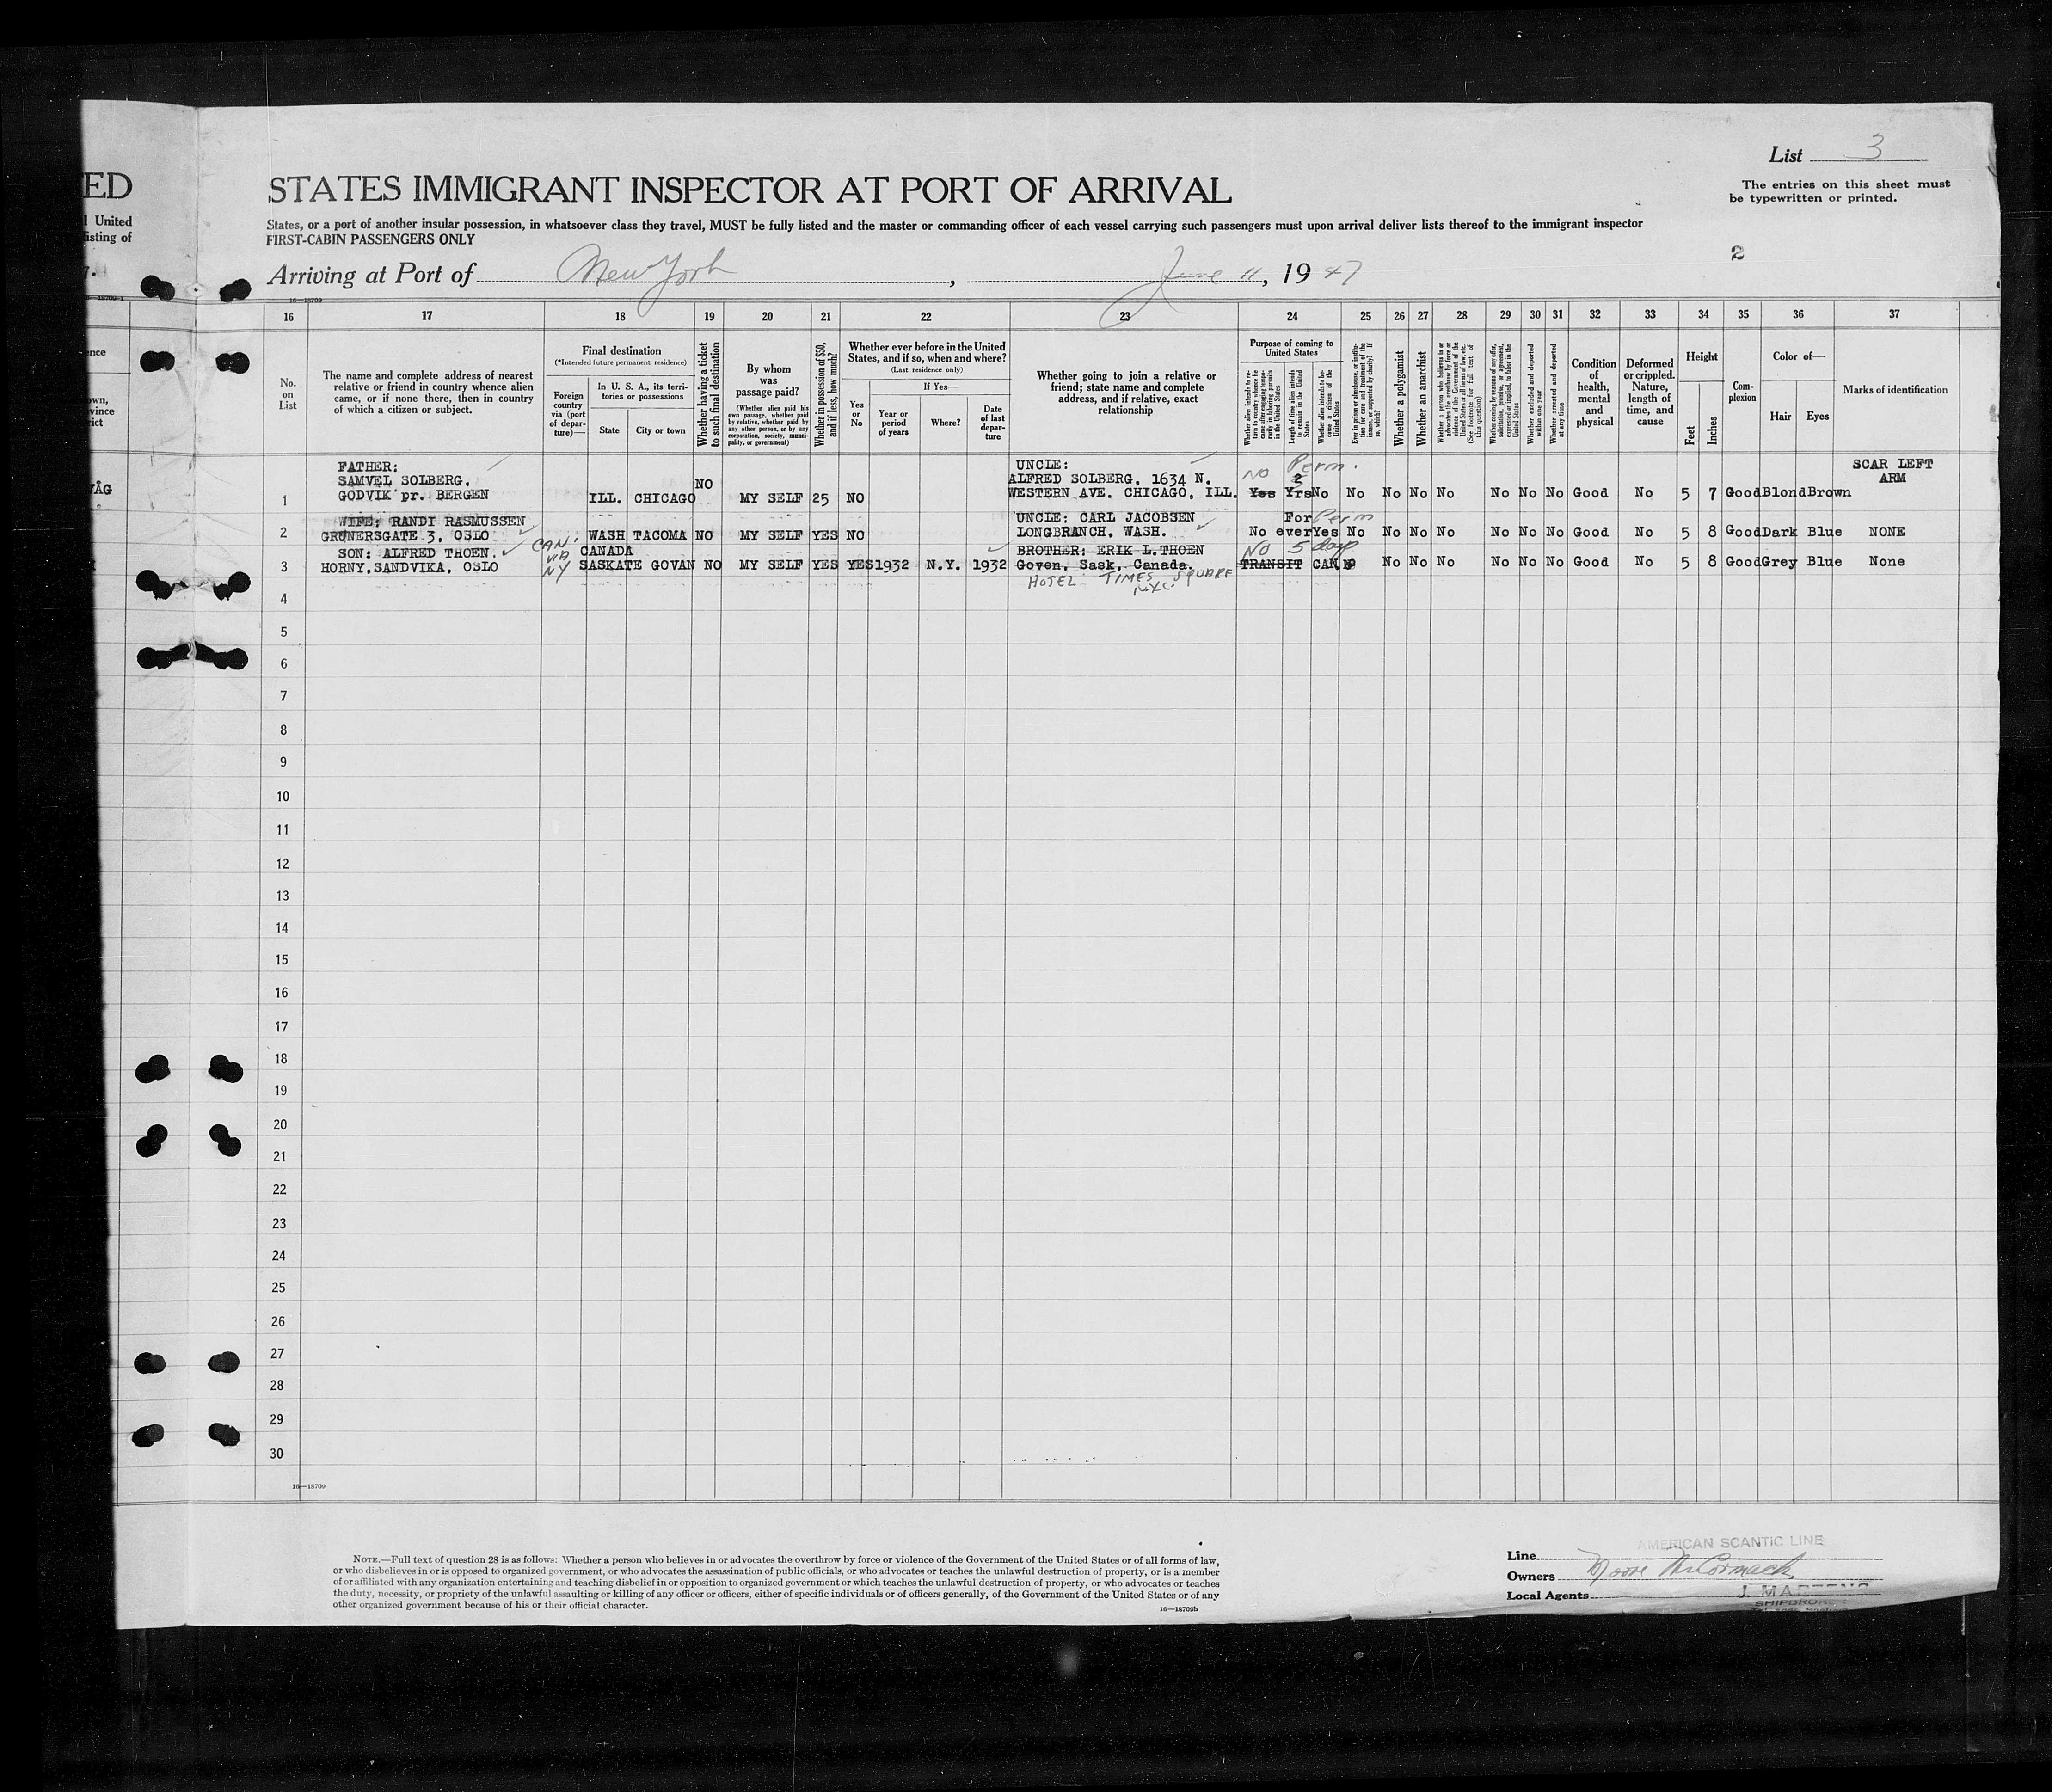 ED
List 3
STATES IMMIGRANT INSPECTOR AT PORT OF ARRIVAL
The entries on this sheet must
be typewritten or printed.
l United
isting of
States, or a port of another insular possession, in whatsoever class they travel, MUST be fully listed and the master or commanding officer of each vessel carrying such passengers must upon arrival deliver lists thereof to the immigrant inspector
FIRST-CABIN PASSENGERS ONLY
2
Arriving at Port of New York, June 11, 1947
16—18709
16 17 18 19 20 21 22 23 24 25 26 27 28 29 30 31 32 33 34 35 36 37
No. on List
The name and complete address of nearest relative or friend in country whence alien came, or if none there, then in country of which a citizen or subject.
Final destination
(*Intended future permanent residence)
Foreign country via (port of departure)—
In U. S. A., its territories or possessions
State
City or town
Whether having a ticket to such final destination
By whom was passage paid?
(Whether alien paid his own passage, whether paid by relative, whether paid by any other person, or by any corporation, society, municipality, or government)
Whether in possession of $50, and if less, how much?
Whether ever before in the United States, and if so, when and where?
(Last residence only)
Yes or No
If Yes—
Year or period of years
Where?
Date of last departure
Whether going to join a relative or friend; state name and complete address, and if relative, exact relationship
Purpose of coming to United States
Length of time alien intends to remain in the United States
Whether alien intends to become a citizen of the United States
Whether a polygamist
Whether an anarchist
Whether excluded and deported within one year
Whether arrested and deported at any time
Condition of health, mental and physical
Deformed or crippled. Nature, length of time, and cause
Height
Feet
Inches
Complexion
Color of—
Hair Eyes
Marks of identification
VÅG
FATHER:
SAMVEL SOLBERG,
1 GODVIK pr. BERGEN ILL. CHICAGO NO MY SELF 25 NO
UNCLE:
ALFRED SOLBERG, 1634 N.
WESTERN AVE. CHICAGO, ILL.
NO Perm.
Yes Yrs No No No No No No No No Good No 5 7 Good Blond Brown
SCAR LEFT
ARM
WIFE: RANDI RASMUSSEN
2 GRUNERSGATE 3, OSLO WASH TACOMA NO MY SELF YES NO
UNCLE: CARL JACOBSEN
LONGBRANCH, WASH.
For Perm
No ever Yes No No No No No No No Good No 5 8 Good Dark Blue NONE
SON: ALFRED THOEN,
3 HORNY, SANDVIKA, OSLO
CAN. VIA NY
CANADA
SASKATE GOVAN NO MY SELF YES YES 1932 N.Y. 1932
BROTHER: ERIK L. THOEN
Goven, Sask, Canada.
HOTEL TIMES SQUARE
NYC.
NO 5 days
TRANSIT CAN. No No No No No No Good No 5 8 Good Grey Blue None
4
5
6
7
8
9
10
11
12
13
14
15
16
17
18
19
20
21
22
23
24
25
26
27
28
29
30
16—18709
NOTE.—Full text of question 28 is as follows: Whether a person who believes in or advocates the overthrow by force or violence of the Government of the United States or of all forms of law,
or who disbelieves in or is opposed to organized government, or who advocates the assassination of public officials, or who advocates or teaches the unlawful destruction of property, or is a member
of or affiliated with any organization entertaining and teaching disbelief in or opposition to organized government or which teaches the unlawful destruction of property, or who advocates or teaches
the duty, necessity, or propriety of the unlawful assaulting or killing of any officer or officers, either of specific individuals or of officers generally, of the Government of the United States or of any
other organized government because of his or their official character.
16—18709b
AMERICAN SCANTIC LINE
Line
Owners Moore McCormack
Local Agents